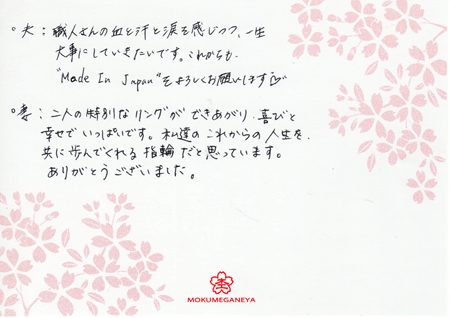 ○夫：職人さんの血と汗と涙を感じつつ、一生
大事にしていきたいです。これからも、
"Made In Japan"をよろしくお願いします
○妻：二人の特別なリングができあがり、喜びと
幸せでいっぱいです。私達のこれからの人生を、
共に歩んでくれる指輪だと思っています。
ありがとうございました。
MOKUMEGANEYA